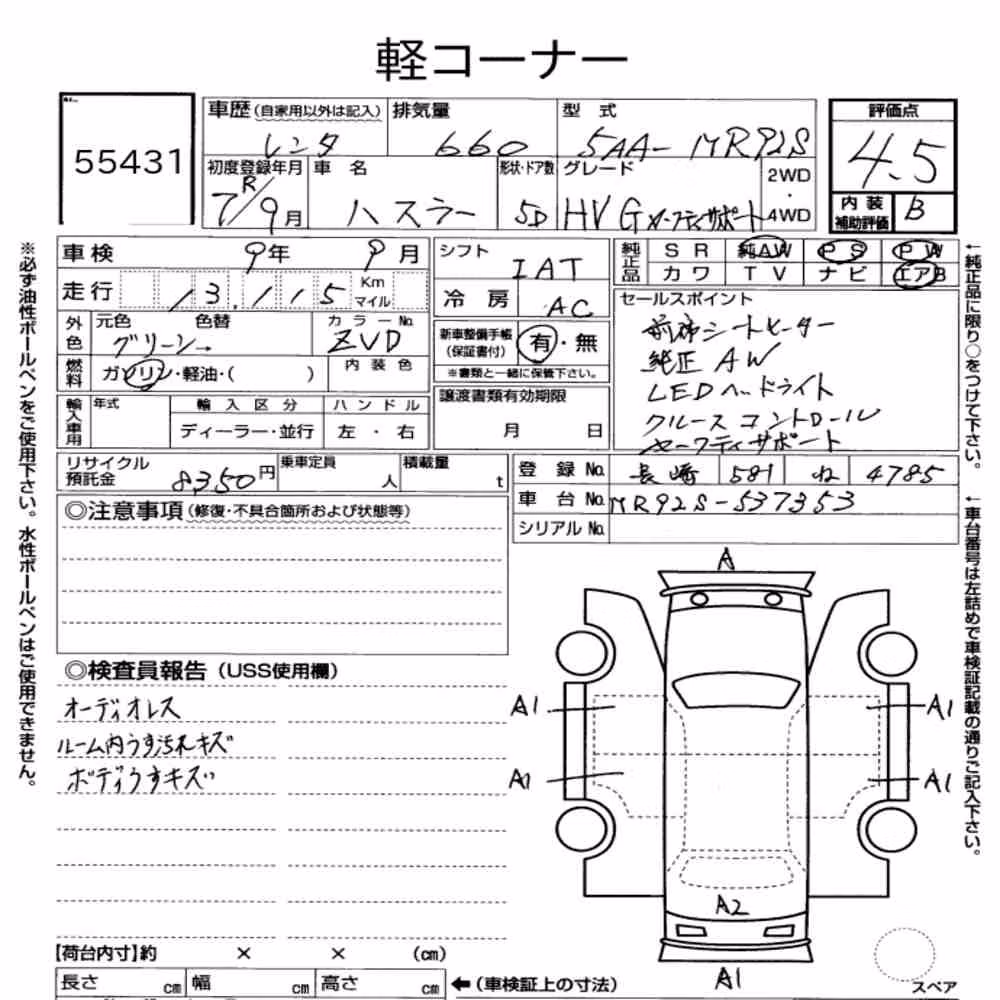 軽コーナー
55431
車歴(自家用以外は記入) 排気量 型式 評価点
レンタ 660 5AA-MR92S 4.5
初度登録年月 車名 形状・ドア数 グレード 2WD・4WD
R7/9月 ハスラー 5D HV G セーフティサポート
内装補助評価 B
車検 9年 9月
走行 13,115 Km マイル
外色 元色 色替 カラーNo.
グリーン ZVD
燃料 ガソリン・軽油・( ) 内装色
輸入車用 年式 輸入区分 ハンドル
ディーラー・並行 左・右
リサイクル預託金 8350円 乗車定員 人 積載量 t
シフト IAT
冷房 AC
新車整備手帳(保証書付) 有・無
※書類と一緒に保管下さい。
譲渡書類有効期限
月 日
純正品 SR 純AW PS PW
カワ TV ナビ エアB
セールスポイント
前席シートヒーター
純正AW
LEDヘッドライト
クルーズコントロール
セーフティサポート
登録No. 長崎 581 ね 4785
車台No. MR92S-537353
シリアルNo.
◎注意事項(修復・不具合箇所および状態等)
◎検査員報告(USS使用欄)
オーディオレス
ルーム内うす汚れキズ
ボディうすキズ
A
A1 A1
A1 A1
A2
A1
スペア
【荷台内寸】約 × × (cm)
長さ cm 幅 cm 高さ cm ←(車検証上の寸法)
※必ず油性ボールペンをご使用下さい。水性ボールペンはご使用できません。
←純正品に限り○をつけて下さい。
←車台番号は左詰めで車検証記載の通りご記入下さい。